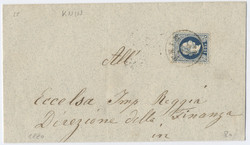 KNIN
All'
Eccelsa Imp Reggia
Direzione della Finanza
in